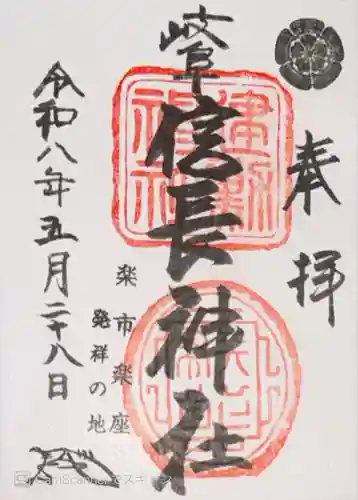 奉拝
岐阜信長神社
楽市楽座
発祥の地
令和八年五月二十八日
CamScannerでスキャン